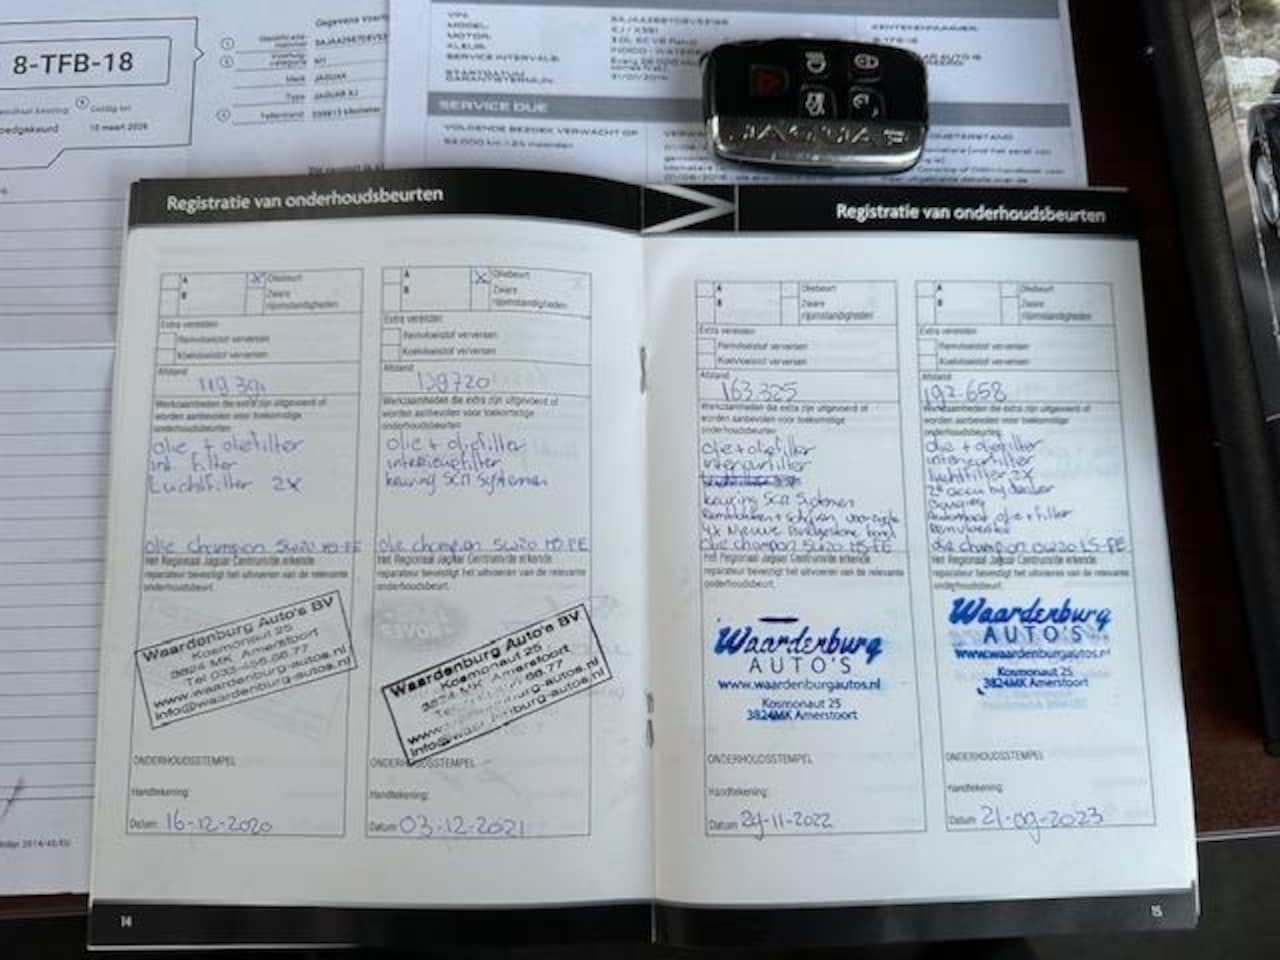 8-TFB-18
Gegevens
Merk JAGUAR
Type JAGUAR XJ
Tellerstand
Geldig tot
10 maart 2026
VIN:
MODEL:
MOTOR:
KLEUR:
SERVICE INTERVALS:
STARTDATUM
GARANTIETERMIJN:
KENTEKENNUMMER:
SERVICE DUE
VOLGENDE BEZOEK VERWACHT OP
JAGUAR
Registratie van onderhoudsbeurten
A
B
X Oliebeurt
Zware
rijomstandigheden
Extra vereisten
Remvloeistof verversen
Koelvloeistof verversen
Afstand
119.391
Werkzaamheden die extra zijn uitgevoerd of
worden aanbevolen voor toekomstige
onderhoudsbeurten
olie + oliefilter
int. filter
Luchtfilter 2X
olie champion 5W20 MS-FE
Het Regionaal Jaguar Centrum/de erkende
reparateur bevestigt het uitvoeren van de relevante
onderhoudsbeurt.
Waardenburg Auto's BV
Kosmonaut 25
3824 MK Amersfoort
Tel 033-456.66.77
www.waardenburg-autos.nl
info@waardenburg-autos.nl
ONDERHOUDSSTEMPEL
Handtekening:
Datum: 16-12-2020
14
A
B
X Oliebeurt
Zware
rijomstandigheden
Extra vereisten
Remvloeistof verversen
Koelvloeistof verversen
Afstand
139720
Werkzaamheden die extra zijn uitgevoerd of
worden aanbevolen voor toekomstige
onderhoudsbeurten
olie + oliefilter
interieurfilter
keuring SCR Systemen
olie champion 5W20 MS-FE
Het Regionaal Jaguar Centrum/de erkende
reparateur bevestigt het uitvoeren van de relevante
onderhoudsbeurt.
Waardenburg Auto's BV
Kosmonaut 25
Amersfoort
ONDERHOUDSSTEMPEL
Handtekening:
Datum 03-12-2021
Registratie van onderhoudsbeurten
A
B
Oliebeurt
Zware
rijomstandigheden
Extra vereisten
Remvloeistof verversen
Koelvloeistof verversen
Afstand
163.325
Werkzaamheden die extra zijn uitgevoerd of
worden aanbevolen voor toekomstige
onderhoudsbeurten
olie + oliefilter
interieurfilter
keuring SCR Systemen
Remblokken + Schijven voorzijde
4x Nieuwe Bridgestone band
olie champion 5W20 MS-FE
Het Regionaal Jaguar Centrum/de erkende
reparateur bevestigt het uitvoeren van de relevante
onderhoudsbeurt.
Waardenburg
AUTO'S
www.waardenburgautos.nl
Kosmonaut 25
3824MK Amersfoort
ONDERHOUDSSTEMPEL
Handtekening:
Datum 24-11-2022
A
B
Oliebeurt
Zware
rijomstandigheden
Extra vereisten
Remvloeistof verversen
Koelvloeistof verversen
Afstand
192-658
Werkzaamheden die extra zijn uitgevoerd of
worden aanbevolen voor toekomstige
onderhoudsbeurten
olie + oliefilter
interieurfilter
luchtfilter 2X
Automaat olie + filter
Remvloeistof
olie champion 0W20 LS-FE
Het Regionaal Jaguar Centrum/de erkende
reparateur bevestigt het uitvoeren van de relevante
onderhoudsbeurt.
Waardenburg
AUTO'S
www.waardenburgautos.nl
Kosmonaut 25
3824MK Amersfoort
ONDERHOUDSSTEMPEL
Handtekening:
Datum 21-09-2023
15